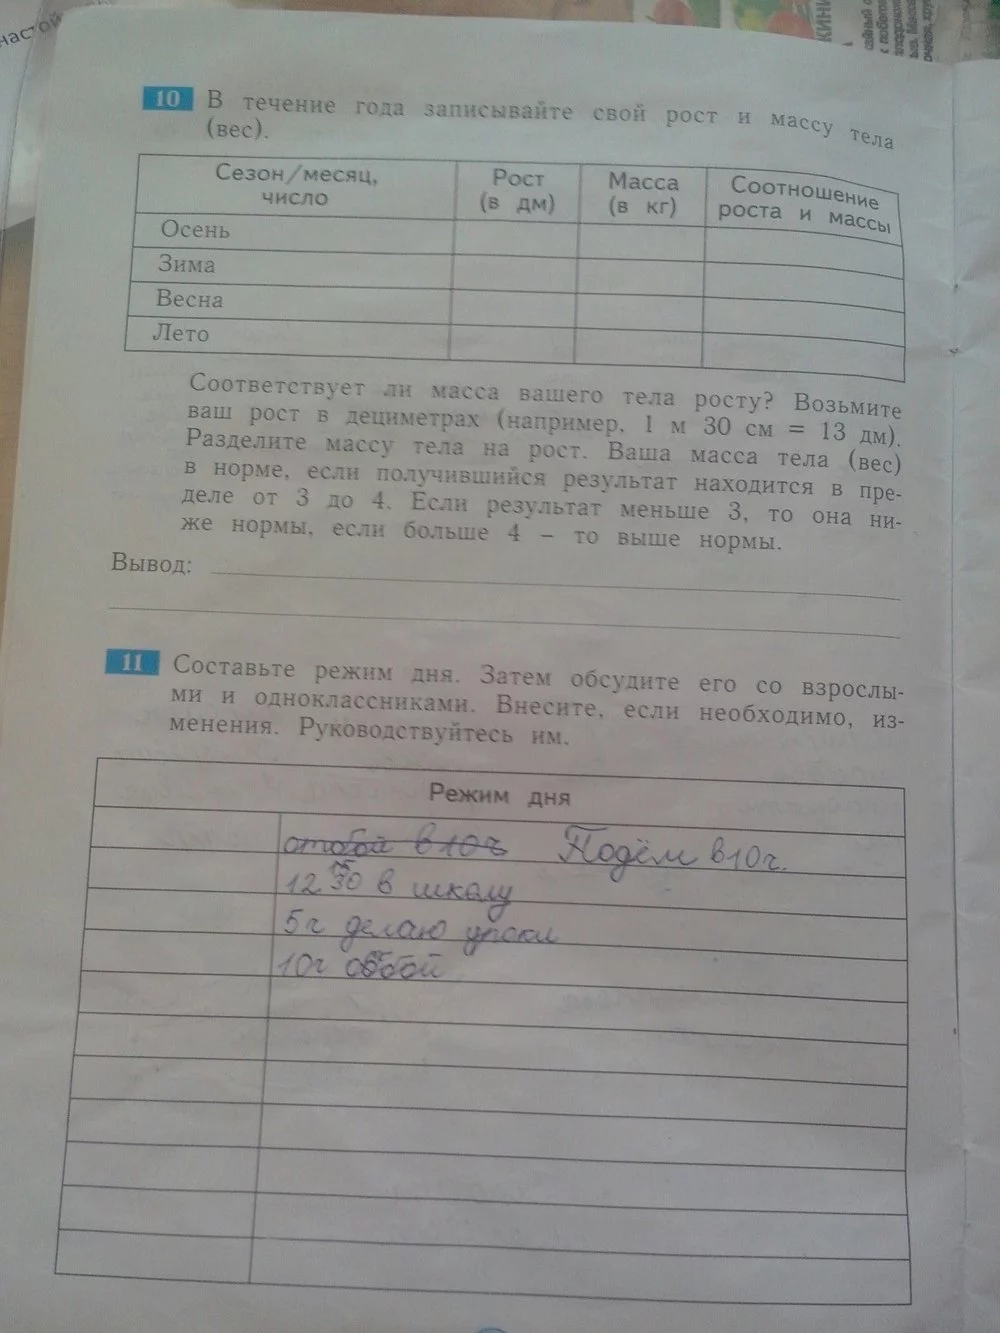 настой
КИНИ
10 В течение года записывайте свой рост и массу тела
(вес).
Сезон/месяц, число
Рост (в дм)
Масса (в кг)
Соотношение роста и массы
Осень
Зима
Весна
Лето
Соответствует ли масса вашего тела росту? Возьмите
ваш рост в дециметрах (например, 1 м 30 см = 13 дм).
Разделите массу тела на рост. Ваша масса тела (вес)
в норме, если получившийся результат находится в пре-
деле от 3 до 4. Если результат меньше 3, то она ни-
же нормы, если больше 4 – то выше нормы.
Вывод:
11 Составьте режим дня. Затем обсудите его со взрослы-
ми и одноклассниками. Внесите, если необходимо, из-
менения. Руководствуйтесь им.
Режим дня
отбой в 10ч Подём в 10ч.
12 30 в школу
5ч делаю уроки
10ч отбой